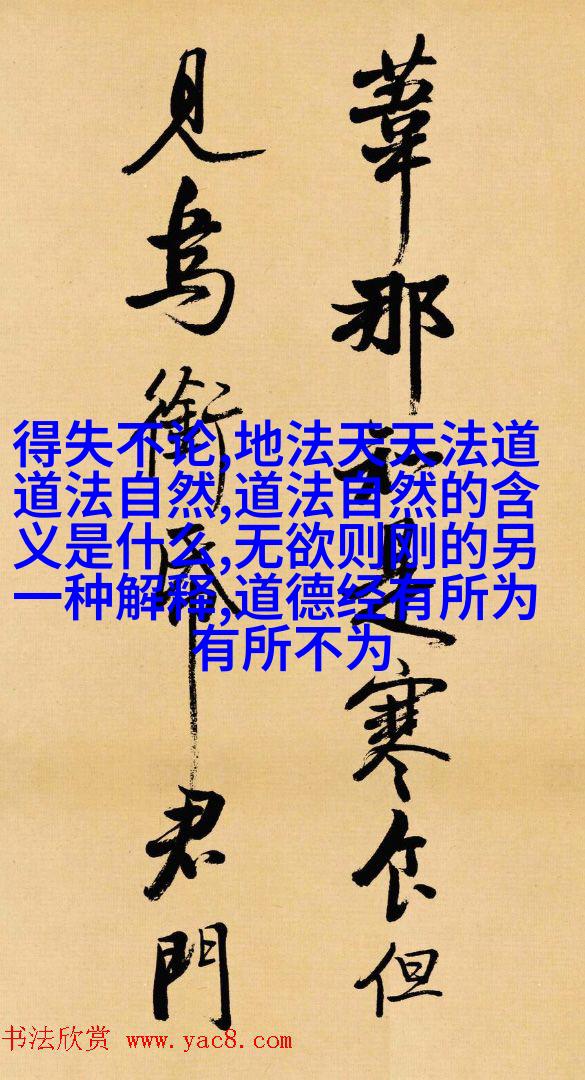 葦那知是寒食但
見烏銜帋君門
得失不论,地法天天法道
道法自然,道法自然的含
义是什么,无欲则刚的另
一种解释,道德经有所为
有所不为
书法欣赏 www.yac8.com